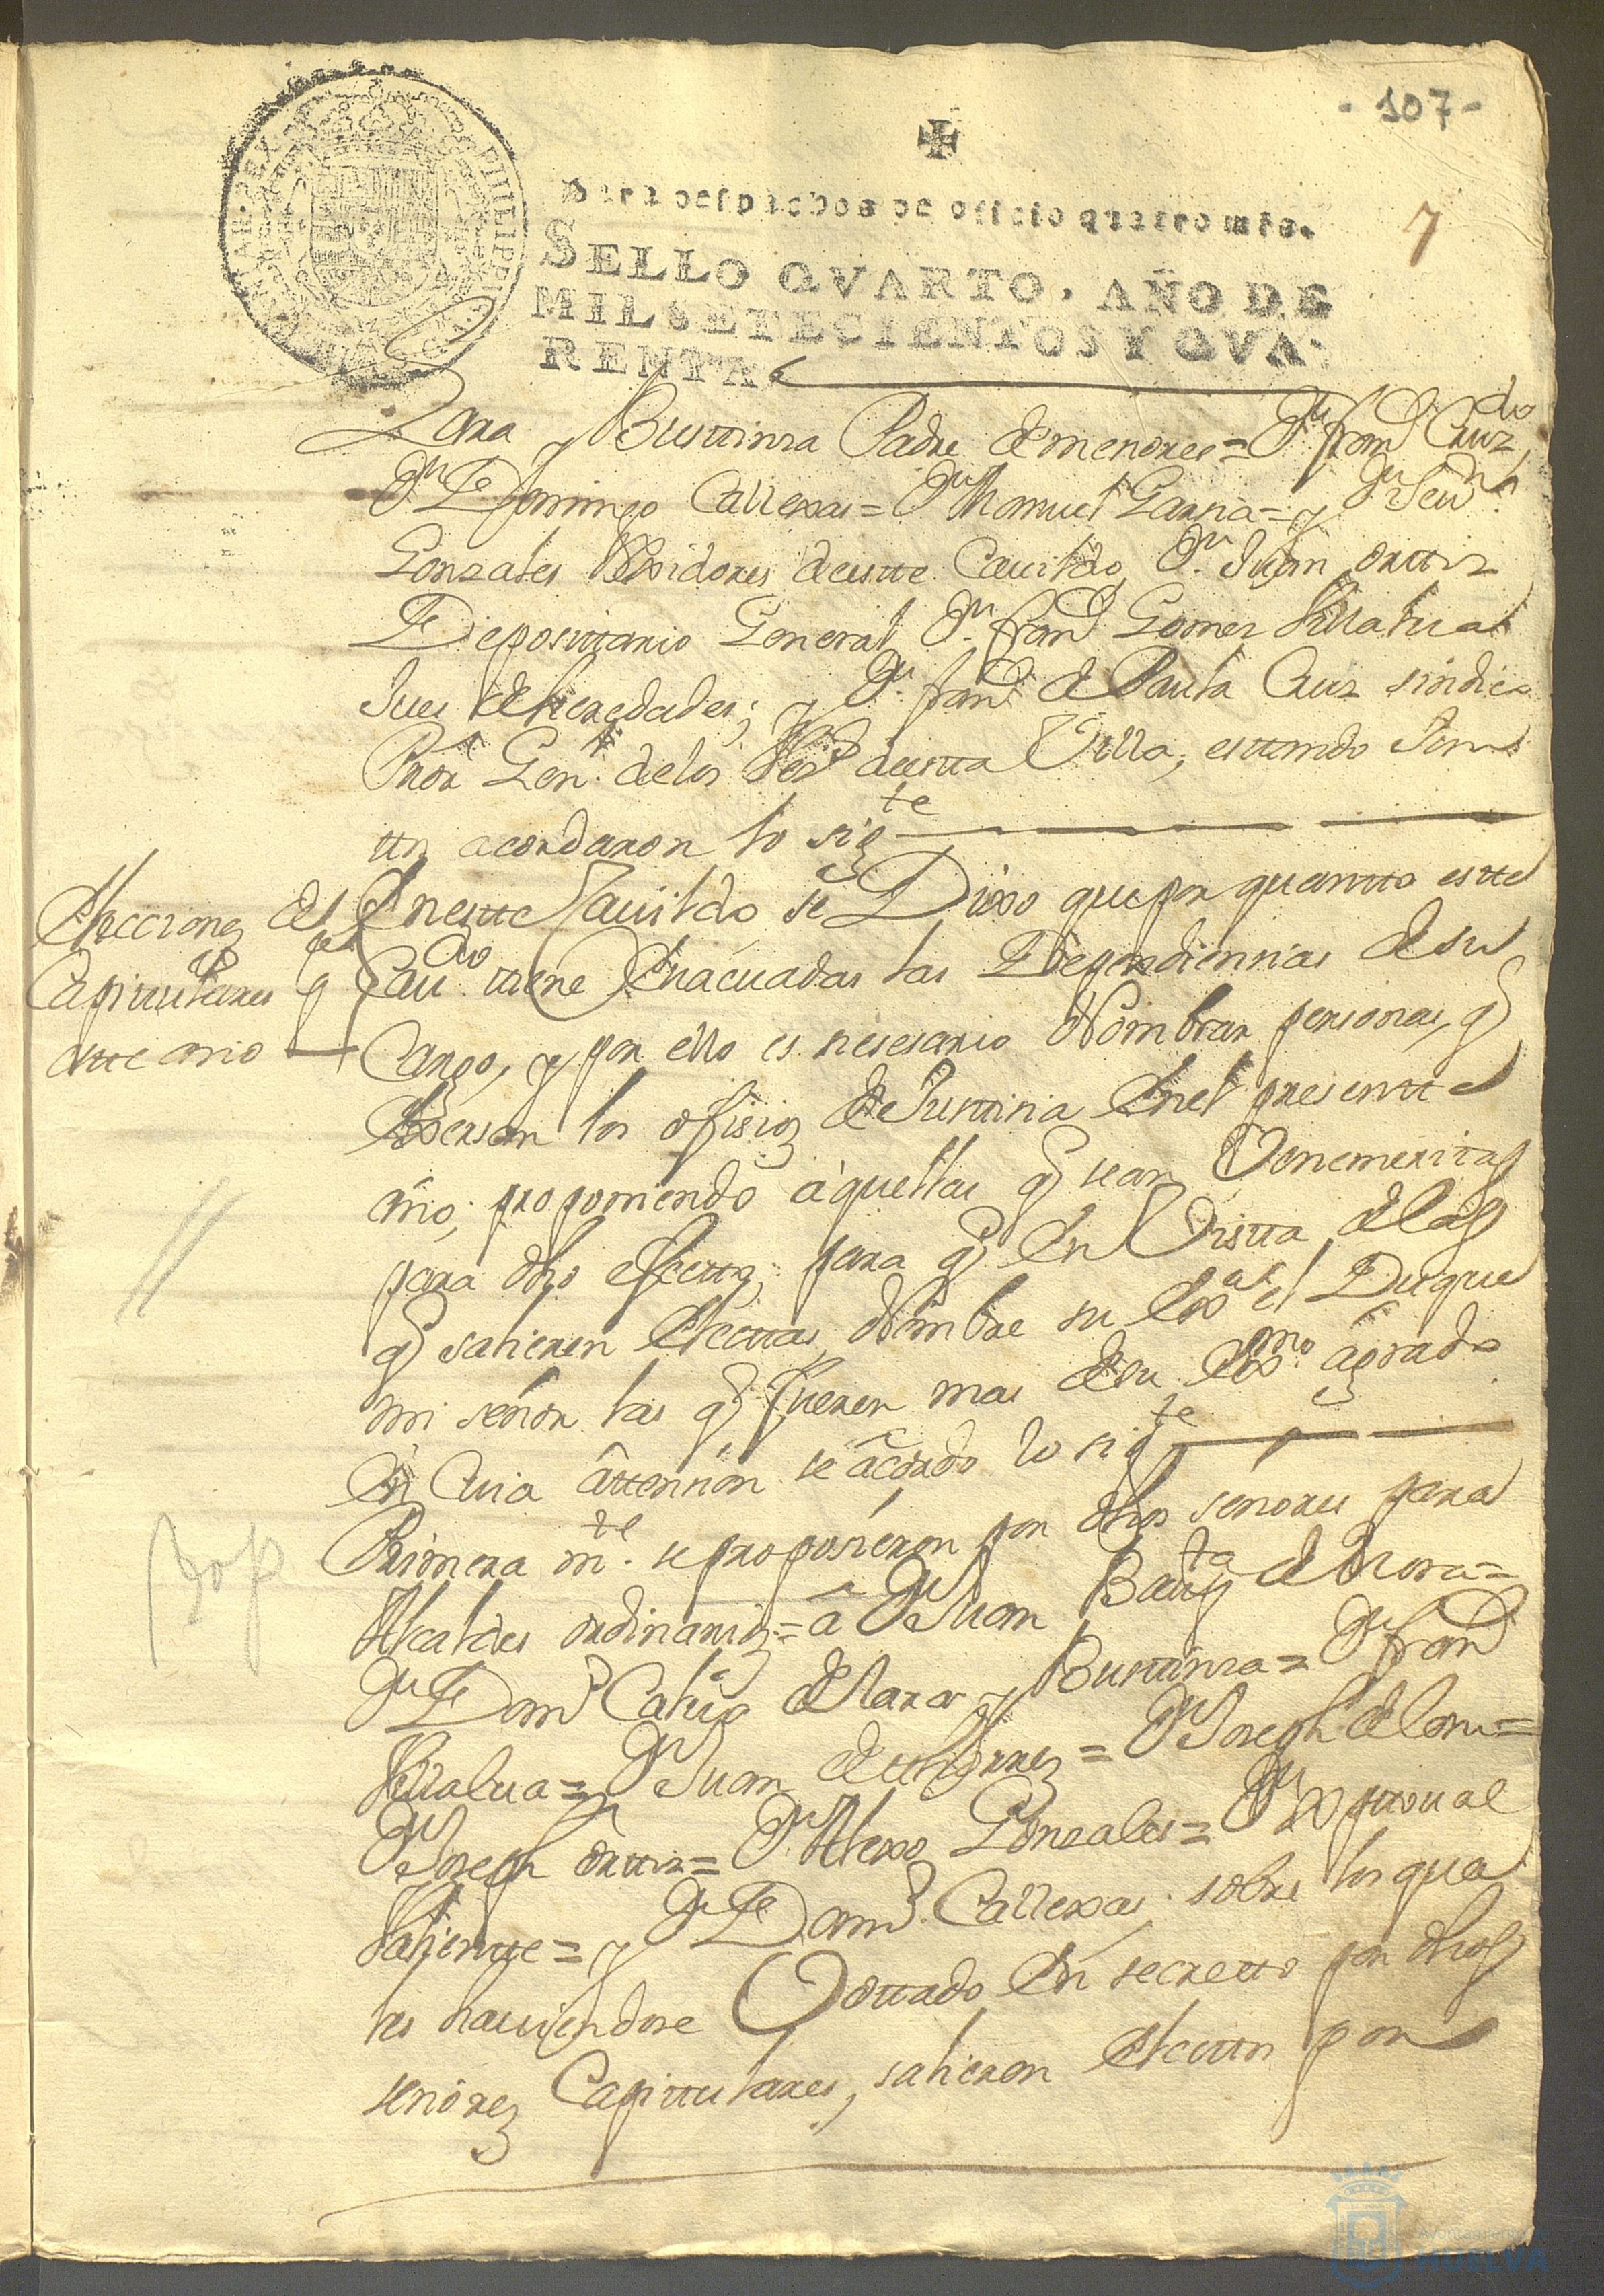 - 107 -
7
Para despachos de oficio quatro mrs.
SELLO QVARTO, AÑO DE
MIL SETECIENTOS Y QVA-
RENTA.
PHILIPPUS
Lara y Busttinza Padre de menores = Dn. Franco Cruz
Dn. Domingo Callexas = Dn. Manuel Garzia = y Dn. Sevn.
Gonzales Rexidores de estte Cavildo, Dn. Juan orttiz
Deposittario General Dn. Franco Gomez Villalua
Jues de heredades; y Dn. Franco de Paula Cruz sindico
Pror. Genl. de los Vezs. de estta Villa, esttando Jun
tos acordaron lo sigte
Elecciones de
Capitulares pa
estte año
En estte Cavildo se Dixo que por quantto estte
Cavdo. tiene Evacuadas las Dependienzias de su
Cargo, y por ello es nesesario Nombrar personas, q
Exersan los ofisios de Justtizia En el presentte
año, proponiendo aquellas q sean Venemeritas
para dho efectto; para q En Vistta de las
q salieren Electtas, Nombre su Exa. el Duque
mi señor las q fueren mas de su Exmo. agrado
En Cuia attenzion se acordo lo sigte
Primera mte. se propusieron por dhos señores para
Alcaldes ordinarios = â Dn. Juan Bauta de Mora =
Dn. Domo Calixto de Lara y Busttinza = Dn. Franco
Villalua = Dn. Juan de = Dn. Joseph de Coru =
Dn. Joseph orttiz = Dn. Alexo Gonzales = Dn. Xpttoual
Valientte = y Dn. Domo. Callexas; sobre los qua
les haviendose Vottado En secretto por dhos
señores Capittulares, salieron electtos por
Ayuntamiento de
HUELVA